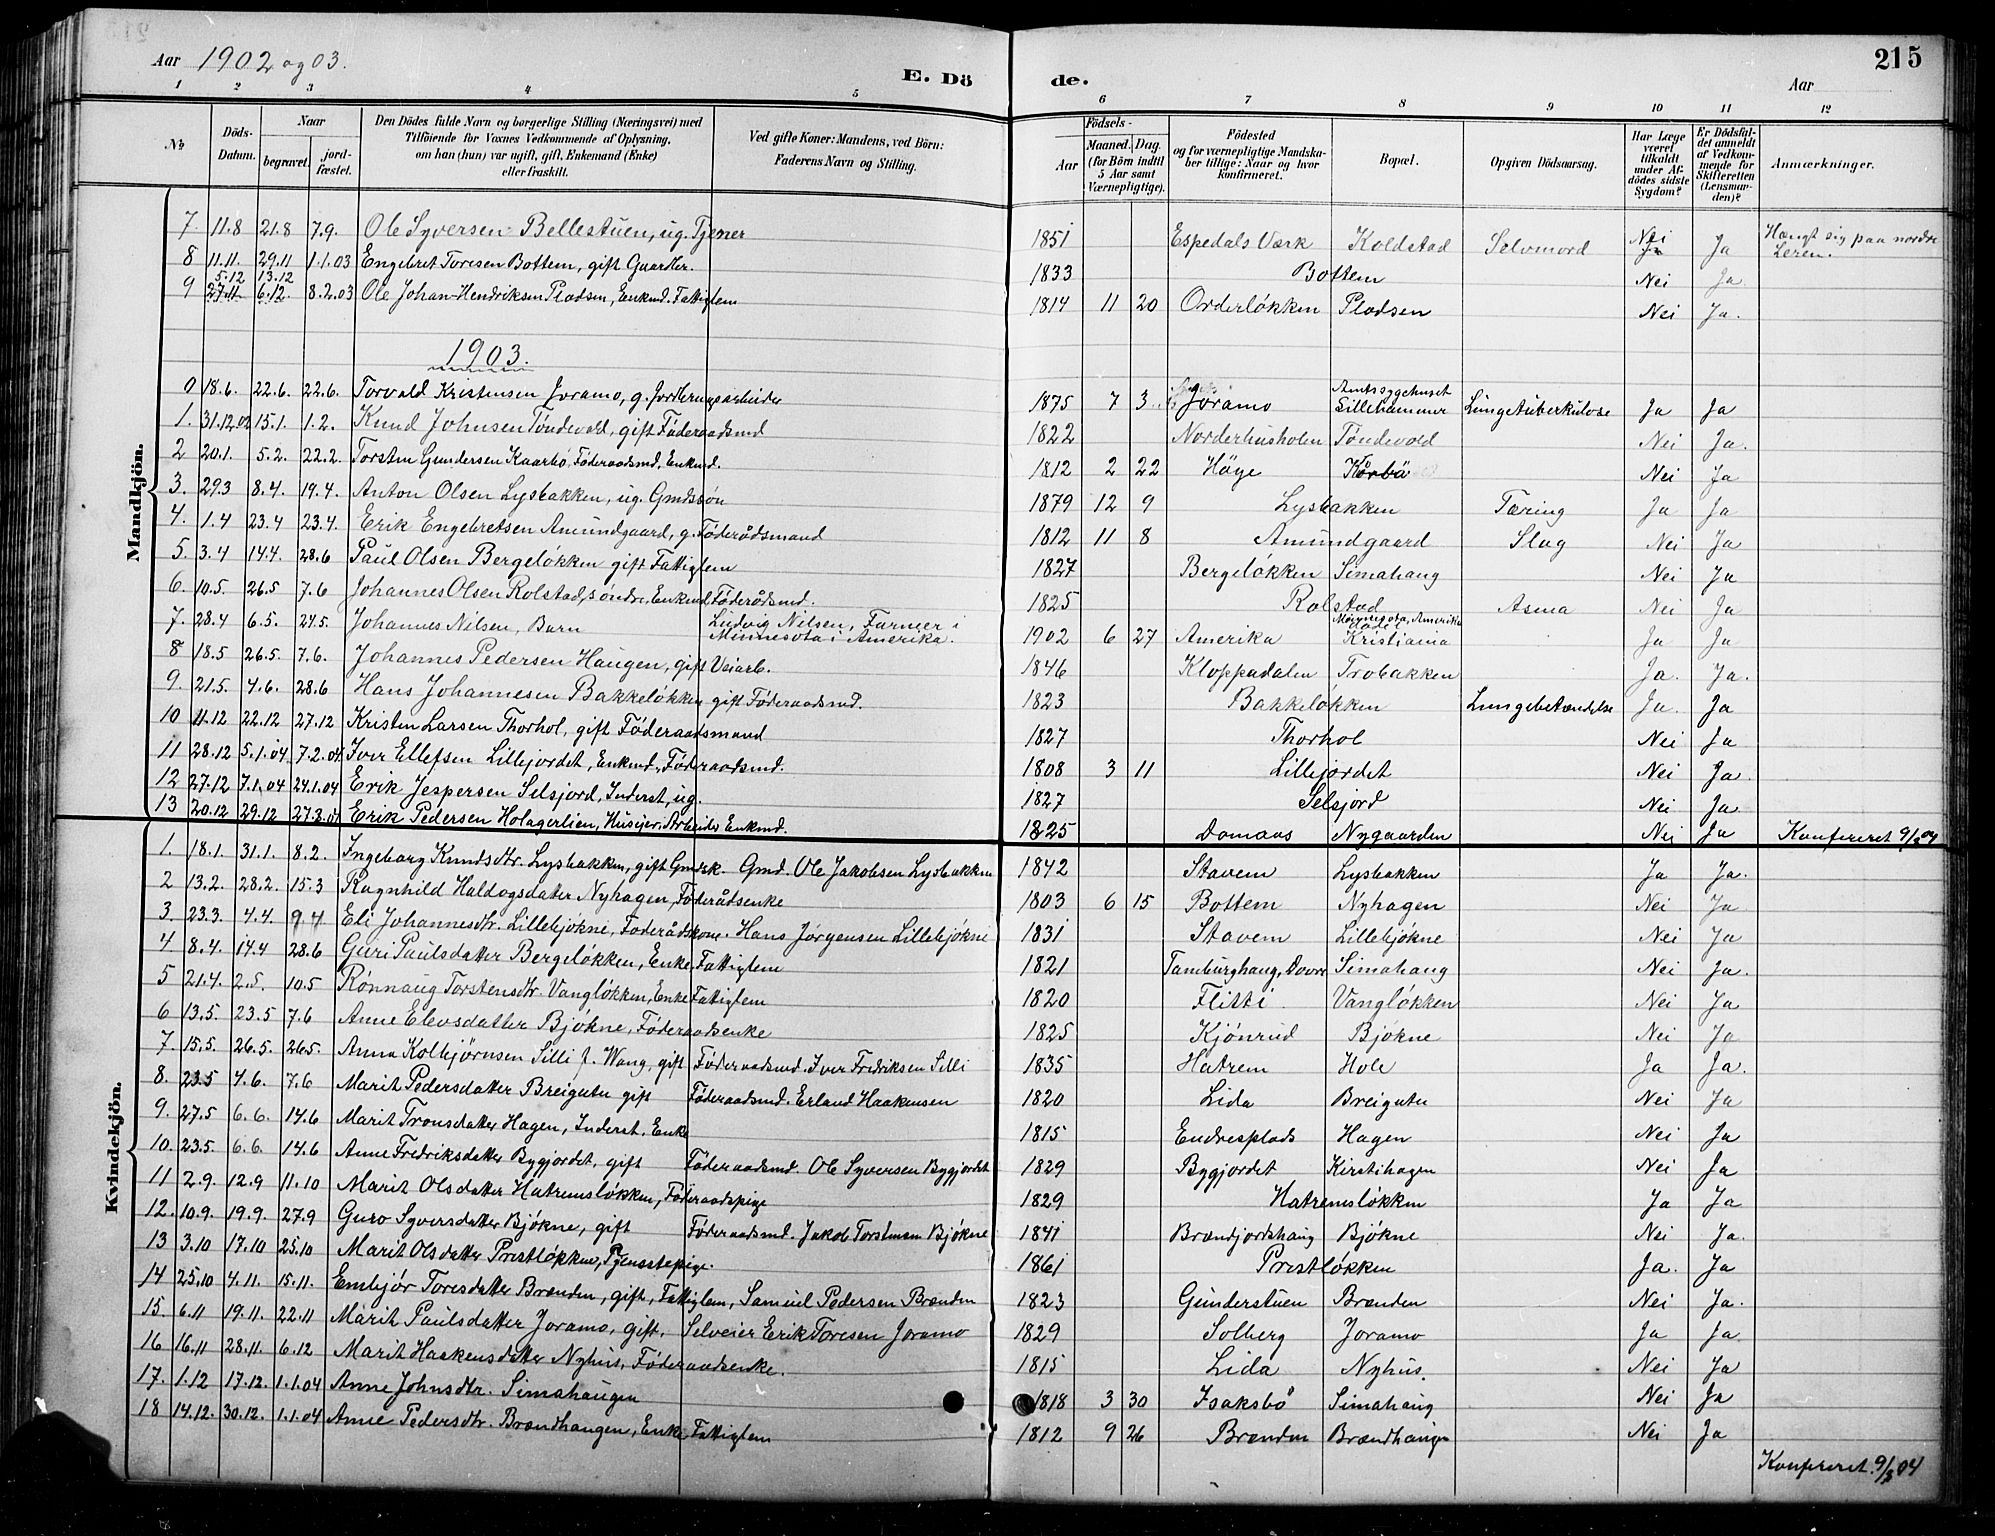 Aar 1902 og 03.
E. Dö de.
Aar
215
1 2 3 4 5 6 7 8 9 10 11 12
No
Döds-Datum.
Naar begravet. jordfæstet.
Den Dödes fulde Navn og borgerlige Stilling (Næringsvei) med Tilföiende for Voxnes Vedkommende af Oplysning, om han (hun) var ugift, gift, Enkemand (Enke) eller fraskilt.
Ved gifte Koner: Mandens, ved Börn: Faderens Navn og Stilling.
Födsels-
Aar Maaned. Dag. (for Börn indtil 5 Aar samt Værnepligtige).
Födested og for værnepligtige Mandskaber tillige: Naar og hvor konfirmeret.
Bopæl.
Opgiven Dödsaarsag.
Har Læge været tilkaldt under Afdödes sidste Sygdom?
Er Dödsfaldet anmeldt af Vedkommende for Skifteretten (Lensmanden)?
Anmærkninger.
Mandkjön.
7. 11.8 21.8 7.9. Ole Syversen Bellestuen, ug. Tjener 1851 Espedals Værk Koldstad Selvmord Nei Ja Hængt sig paa nordre Leren.
8 11.11. 29.11 1.1.03 Engebret Toresen Bottem, gift Gaardbr. 1833 Bottem Nei Ja.
9 5.12 27.11 13.12 6.12. 8.2.03 Ole Johan Hendriksen Pladsen, Enkmd. Fattiglem 1814 11 20 Orderløkken Pladsen Nei Ja.
1903.
0 18.6. 22.6. 22.6. Torvald Kristensen Joramo, g. Jordbrugsarbeider 1875 7 3. Joramo Amtssygehuset Lillehammer Lungetuberkulose Ja Ja
1. 31.12.02 15.1. 1.2. Knud Johnsen Tøndevold, gift Føderaadsmd 1822 Norderhusholen Tøndevold Nei Ja.
2 20.1. 5.2. 22.2. Torsten Gundersen Kaarbø, Føderaadsmd, Enkmd. 1812 2 22 Høye Kårbø Nei Ja
3. 29.3 8.4. 19.4. Anton Olsen Lysbakken, ug. Gmdssøn 1879 12 9 Lysbakken Tæring Ja Ja
4. 1.4 23.4 23.4. Erik Engebretsen Amundgaard, g. Føderådsmand 1812 11 8 Amundgaard Slag Nei Ja
5. 3.4 14.4. 28.6 Paul Olsen Bergeløkken gift Fattiglem 1827 Bergeløkken Simahaug Nei Ja
6. 10.5. 26.5 7.6 Johannes Olsen Rolstad, søndre, Enkmd Føderådsmd. 1825 Rolstad Asma Nei Ja
7. 28.4 6.5. 24.5. Johannes Nilsen, Barn Ludvig Nilsen, Farmer i Minnesota i Amerika. 1902 6 27 Amerika Minnesota, Amerika Kristiania Ja Ja
8 18.5 26.5. 7.6. Johannes Pedersen Haugen, gift Veiarb. 1846 Kloppadalen Trobakken Ja. Ja.
9. 21.5. 4.6. 28.6 Hans Johannesen Bakkeløkken gift Føderaadsmd. 1823 Bakkeløkken Lungebetændelse Ja. Ja
10 11.12 22.12 27.12 Kristen Larsen Thorhol, gift Føderaadsmand 1827 Thorhol Nei Ja
11 28.12 5.1.04 7.2.04 Iver Ellefsen Lillejordet, Enkmd, Føderaadsmd. 1808 3 11 Lillejordet Nei Ja.
12 27.12 7.1.04 24.1.04 Erik Jespersen Selsjord, Inderst, ug. 1827 Selsjord Nei Ja
13 20.12 29.12 27.2.04 Erik Pedersen Holagerlien, Huseier, Arbeider Enkmd. 1825 Domaas Nygaarden Nei Ja Konfereret 9/3 04
Kvindekjön.
1. 18.1. 31.1. 8.2. Ingeborg Knudsdtr. Lysbakken, gift Gmdsk. Gmd. Ole Jakobsen Lysbakken 1842 Stavem Lysbakken Ja Ja.
2 13.2. 28.2. 15.3 Ragnhild Haldogsdatter Nyhagen, Føderådsenke 1803 6 15 Bottem Nyhagen Nei Ja
3. 23.3. 4.4. 9.4 Eli Johannesdtr. Lillebjøkne, Føderådskone. Hans Jørgensen Lillebjøkne 1831 Stavem Lillebjøkne Nei Ja
4 8.4. 14.4 28.6 Guri Paulsdatter Bergeløkken, Enke Fattiglem 1821 Tamburghaug, Dovre Simahaug Nei Ja.
5 21.4. 2.5. 10.5 Rønnaug Torstensdtr. Vangløkken, Enke Fattiglem 1820 Flitti Vangløkken Nei Ja
6 13.5. 23.5 7.6 Anne Elevsdatter Bjøkne, Føderaadsenke 1825 Kjønrud Bjøkne Nei Ja
7. 15.5. 26.5. 26.5. Anna Kolbjørnsen Silli f. Wang, gift Føderaadsmd. Iver Fredriksen Silli 1835 Hatrem Hole Ja Ja.
8. 23.5 4.6. 7.6 Marit Pedersdatter Breigutu gift Føderaadsmd. Erland Haakensen 1820 Lida Breigutu Nei Ja
9. 27.5 6.6. 14.6 Marit Tronsdatter Hagen, Inderst, Enke 1815 Endresplads Hagen Nei Ja
10. 23.5. 6.6. 14.6 Anne Fredriksdatter Bygjordet, gift Føderaadsmd. Ole Syversen Bygjordet 1829 Bygjordet Kirstihagen Nei Ja
11 2.9. 12.9 11.10 Marit Olsdatter Hatremsløkken, Føderaadspige 1829 Hatremsløkken Ja Ja
12. 10.9. 19.9. 27.9 Guro Syversdatter Bjøkne, gift Føderaadsmd. Jakob Torstensen Bjøkne 1841 Brændjordshaug Bjøkne Nei Ja.
13 3.10 17.10 25.10 Marit Olsdatter Prestløkken, Tjenestepige. 1861 Prestløkken Ja. Ja
14 25.10 4.11. 15.11. Embjør Toresdatter Brænden, gift, Fattiglem, Samuel Pedersen Brænden 1823 Gunderstuen Brænden Nei Ja.
15. 6.11 19.11. 22.11 Marit Paulsdatter Joramo, gift, Selveier Erik Toresen Joramo 1829 Solberg Joramo Ja Ja.
16 16.11 28.11. 6.12 Marit Haakensdatter Nyhus, Føderaadsenke. 1815 Lida Nyhus. Nei Ja
17. 1.12 17.12. 1.1.04 Anne Johnsdtr. Simahaugen 1818 3 30 Isaksbø Simahaug Nei Ja
18 14.12. 30.12. 1.1.04 Anne Pedersdtr. Brændhaugen, Enke, Fattiglem 1812 9 26 Brænden Brændhaugen Nei Ja
Konfereret 9/3 04